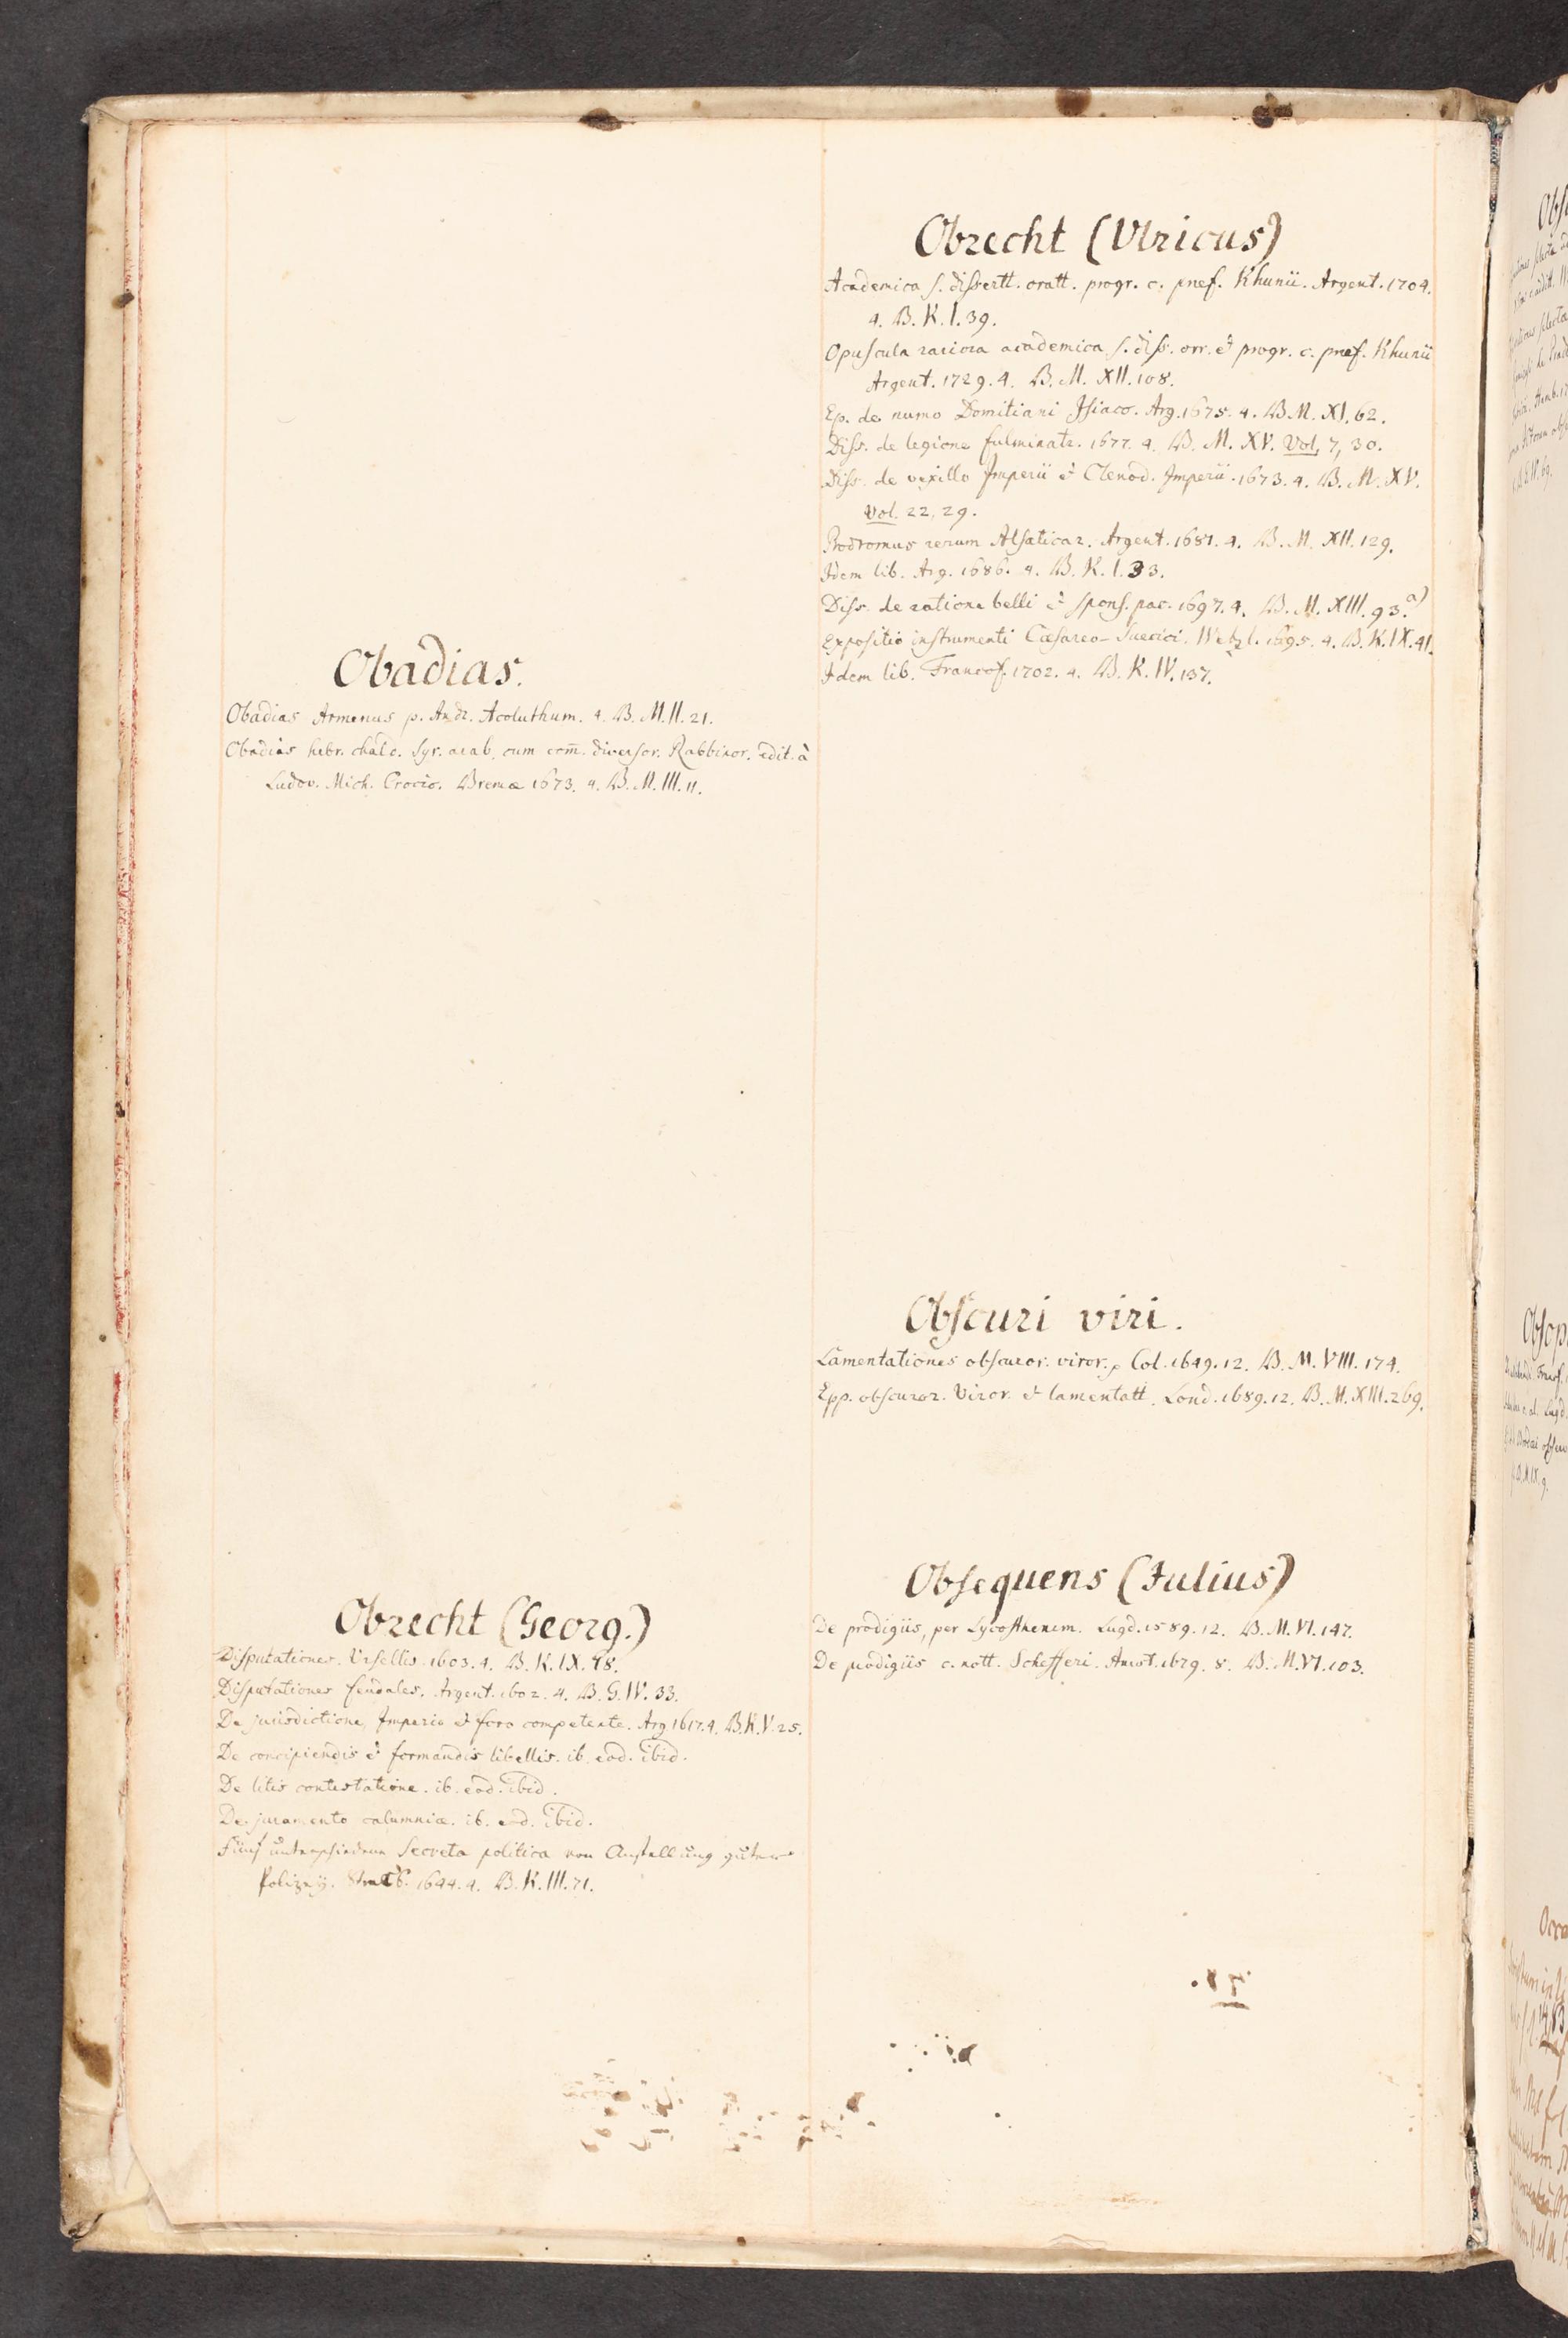 Obadias.
Obadias Armenus p. Andr. Acoluthum. 4. B. M. II. 21.
Obadias hebr. chald. syr. arab. cum com̄. diversor. Rabbinor. edit. à
Ludov. Mich. Crocio. Bremæ 1673. 4. B. M. III. 11.
Obrecht (Georg.)
Disputationes. Ursellis. 1603. 4. B. K. IX. 98.
Disputationes feudales. Argent. 1602. 4. B. G. IV. 33.
De jurisdictione, Imperio & foro competente. Arg 1617. 4. B. K. V. 25.
De concipiendis & formandis libellis. ib. eod. ibid.
De litis contestatione. ib. eod. ibid.
De juramento calumniæ. ib. eod. ibid.
Fünf unterschiedene Secreta politica von Anstellung guter
Polizeÿ. Strasb. 1644. 4. B. K. III. 71.
Obrecht (Ulricus)
Academica s. dissertt. oratt. progr. c. præf. Khunii. Argent. 1704.
4. B. K. I. 39.
Opuscula rariora academica s. diss. orr. & progr. c. præf. Khunii
Argent. 1729. 4. B. M. XII. 108.
Ep. de numo Domitiani Isiaco. Arg. 1675. 4. B. M. XI. 62.
Diss. de legione fulminatr. 1677. 4. B. M. XV. Vol. 7, 30.
Diss. de vexillo Imperii & Clenod. Imperii. 1673. 4. B. M. XV.
Vol. 22, 29.
Prodromus rerum Alsaticar. Argent. 1681. 4. B. M. XII. 129.
Idem lib. Arg. 1686. 4. B. K. I. 33.
Diss. de ratione belli & spons. pac. 1697. 4. B. M. XIII. 93. a)
Expositio instrumenti Cæsareo-Suecici. Wetzl. 1695. 4. B. K. IX. 41.
Idem lib. Francof. 1702. 4. B. K. IV. 137.
Obscuri viri.
Lamentationes obscuror. viror. Col. 1649. 12. B. M. VIII. 174.
Epp. obscuror. Viror. & lamentatt. Lond. 1689. 12. B. M. XIII. 269.
Obsequens (Julius)
De prodigiis, per Lycosthenem. Lugd. 1589. 12. B. M. VI. 147.
De prodigiis c. nott. Schefferi. Amst. 1679. 8. B. M. VI. 103.